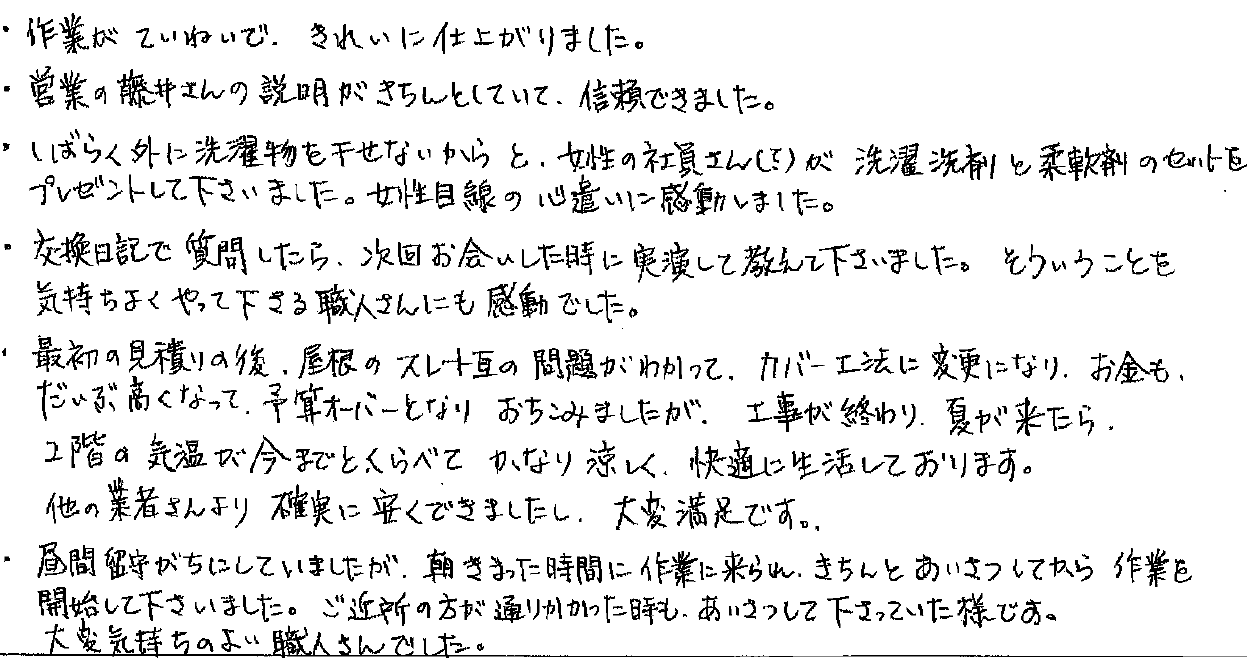 ・作業がていねいで、きれいに仕上がりました。
・営業の藤井さんの説明がきちんとしていて、信頼できました。
・しばらく外に洗濯物を干せないからと、女性の社員さん()が 洗濯洗剤と柔軟剤のセットを
プレゼントして下さいました。女性目線の心遣いに感動しました。
・交換日記で質問したら、次回お会いした時に実演して教えて下さいました。そういうことを
気持ちよくやって下さる職人さんにも感動でした。
・最初の見積りの後、屋根のスレート瓦の問題がわかって、カバー工法に変更になり、お金も、
だいぶ高くなって、予算オーバーとなりおちこみましたが、工事が終わり、夏が来たら、
2階の気温が今までとくらべてかなり涼しく、快適に生活しております。
他の業者さんより確実に安くできましたし、大変満足です。
・昼間留守がちにしていましたが、朝きまった時間に作業に来られ、きちんとあいさつしてから作業を
開始して下さいました。ご近所の方が通りかかった時も、あいさつして下さっていた様です。
大変気持ちのよい職人さんでした。